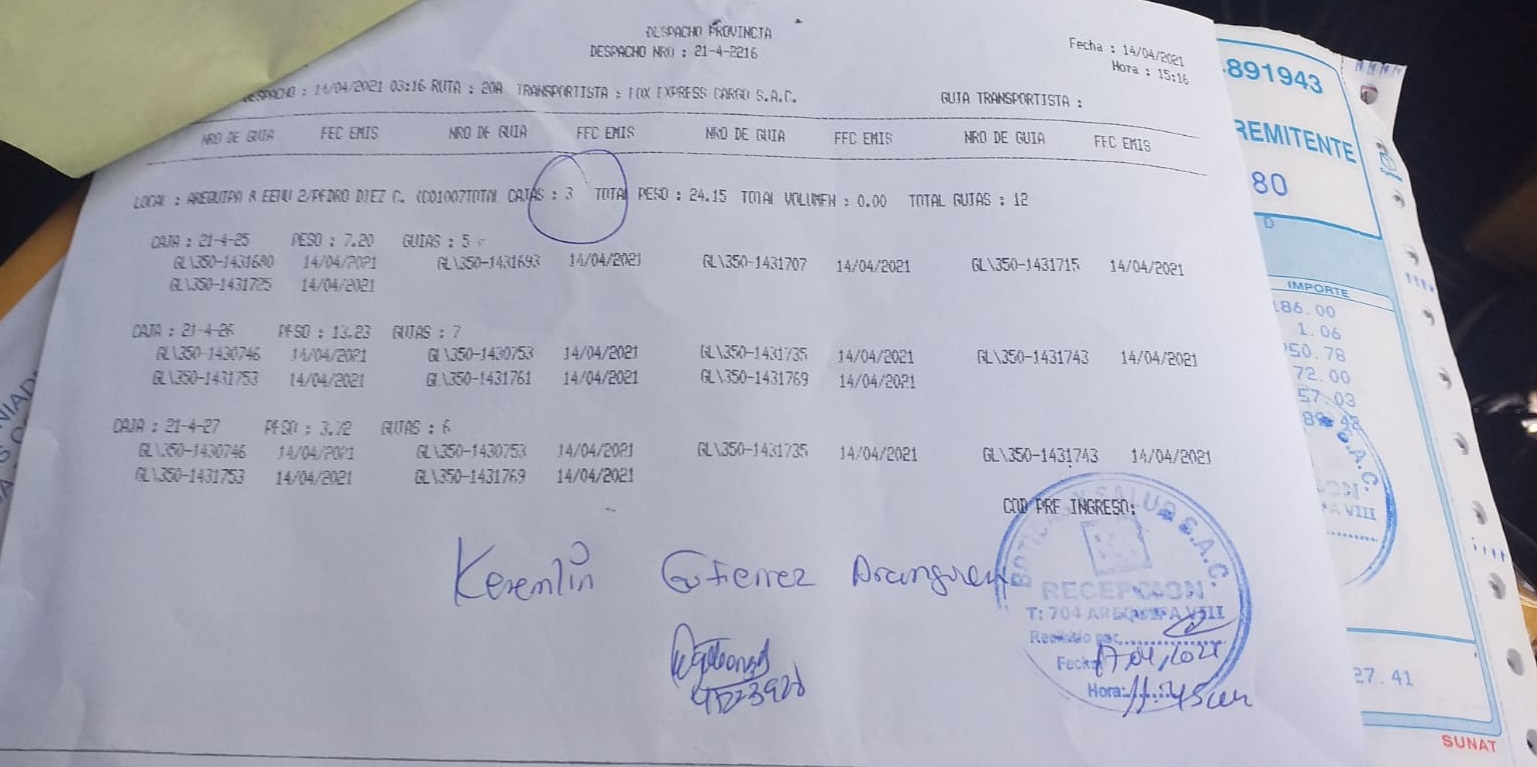 DESPACHO PROVINCIA
DESPACHO NRO : 21-4-2216
Fecha : 14/04/2021
Hora : 15:16
DESPACHO : 14/04/2021 03:16 RUTA : 20A TRANSPORTISTA : FOX EXPRESS CARGO S.A.C. GUIA TRANSPORTISTA :
NRO DE GUIA FEC EMIS NRO DE GUIA FEC EMIS NRO DE GUIA FEC EMIS NRO DE GUIA FEC EMIS
LOCAL : AREQUIPA 8 EEUU 2/PEDRO DIEZ C. (CO1007TOTAL CAJAS : 3 TOTAL PESO : 24.15 TOTAL VOLUMEN : 0.00 TOTAL GUIAS : 12
CAJA : 21-4-25 PESO : 7.20 GUIAS : 5
GL\350-1431680 14/04/2021 GL\350-1431693 14/04/2021 GL\350-1431707 14/04/2021 GL\350-1431715 14/04/2021
GL\350-1431725 14/04/2021
CAJA : 21-4-26 PESO : 13.23 GUIAS : 7
GL\350-1430746 14/04/2021 GL\350-1430753 14/04/2021 GL\350-1431735 14/04/2021 GL\350-1431743 14/04/2021
GL\350-1431753 14/04/2021 GL\350-1431761 14/04/2021 GL\350-1431769 14/04/2021
CAJA : 21-4-27 PESO : 3.72 GUIAS : 6
GL\350-1430746 14/04/2021 GL\350-1430753 14/04/2021 GL\350-1431735 14/04/2021 GL\350-1431743 14/04/2021
GL\350-1431753 14/04/2021 GL\350-1431769 14/04/2021
COD PRE INGRESO:
Keremlin Gutierrez Aranguren
S.A.C.
RECEPCION
T: 704 AREQUIPA VIII
Recibido por
Fecha 17 04, 2021
Hora: 11:45 am
891943
REMITENTE
80
IMPORTE
186.00
1.06
50.78
72.00
57.03
89.42
A.C.
A VIII
27.41
SUNAT